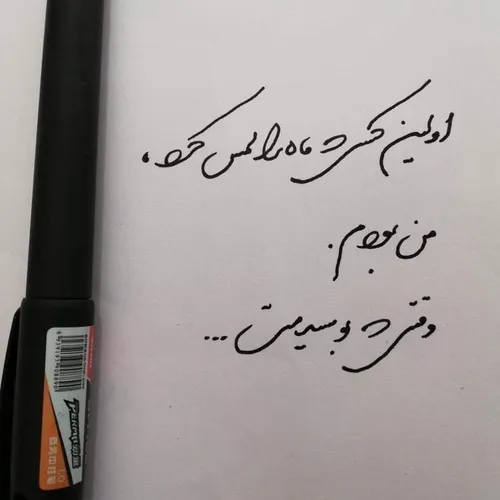 اولین کسی که ماه را لمس کرد،
من بودم.
وقتی که بوسیدمت...